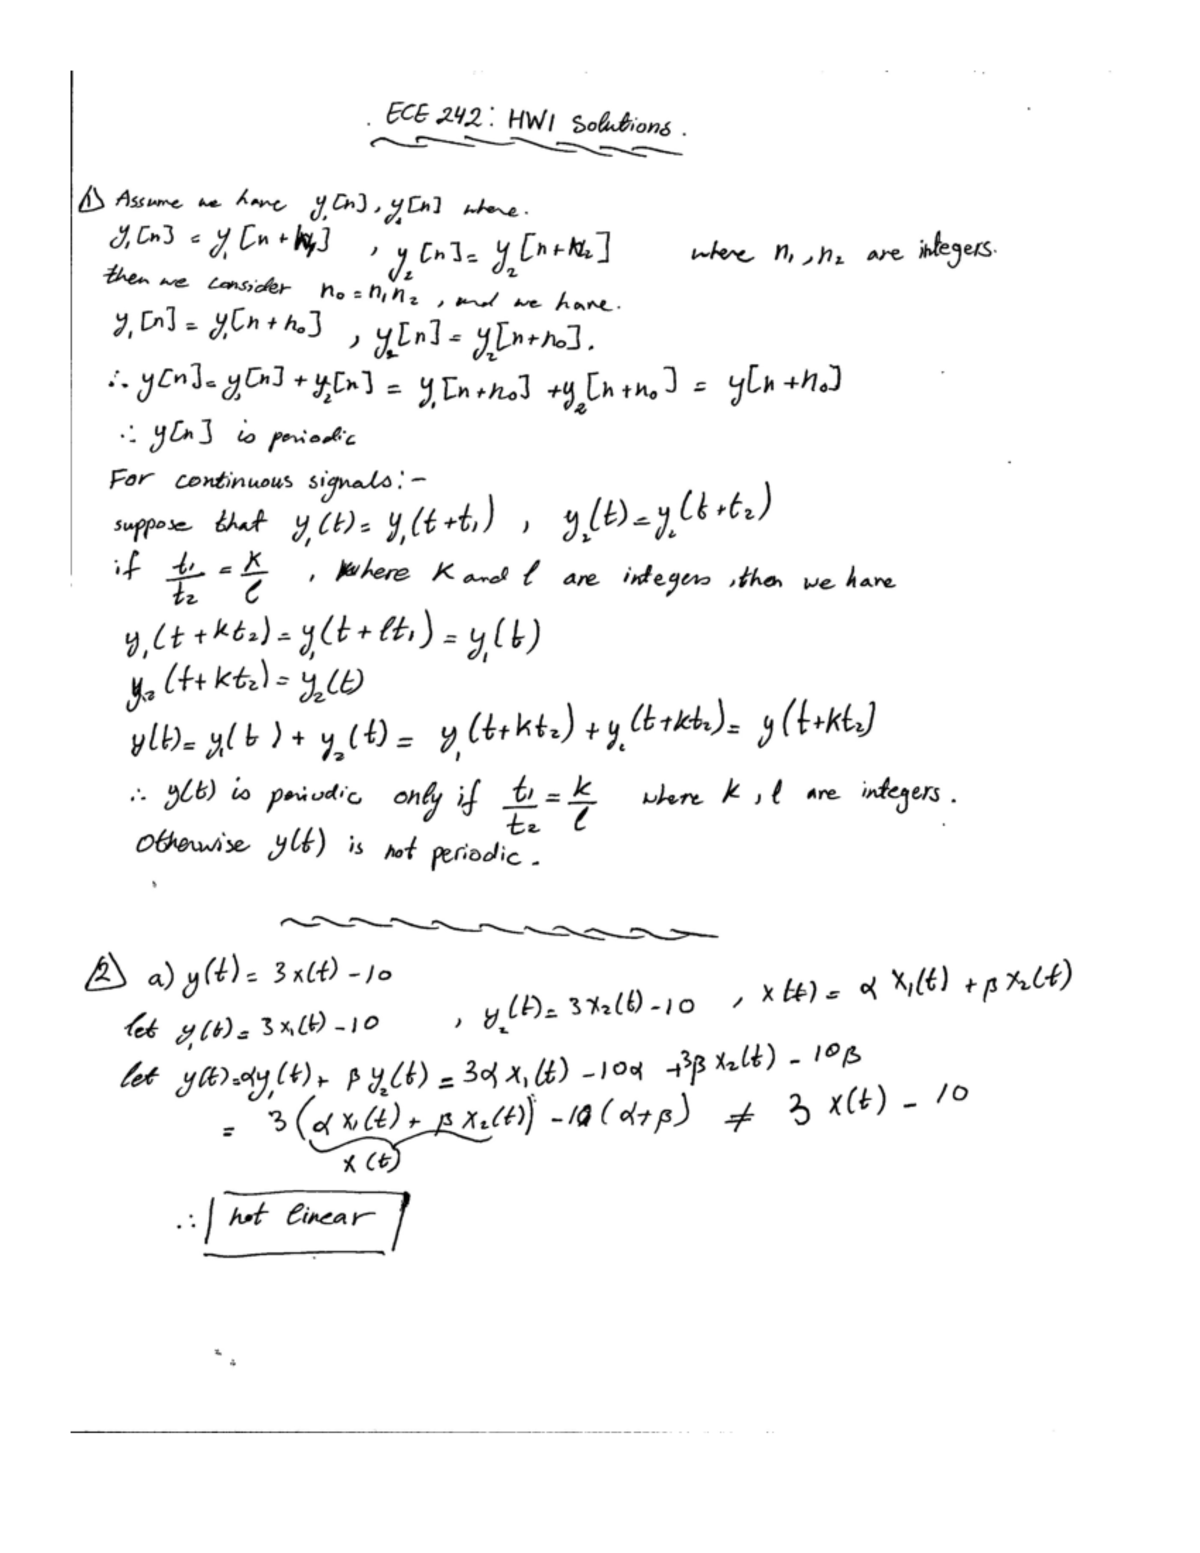 ECE 242: HW1 Solutions.
① Assume we have y₁[n], y₂[n] where.
y₁[n] = y₁[n + n₁] , y₂[n] = y₂[n + n₂] where n₁, n₂ are integers.
then we consider n₀ = n₁n₂ , and we have.
y₁[n] = y₁[n + n₀] , y₂[n] = y₂[n + n₀].
∴ y[n] = y₁[n] + y₂[n] = y₁[n + n₀] + y₂[n + n₀] = y[n + n₀]
∴ y[n] is periodic
For continuous signals:-
suppose that y₁(t) = y₁(t + t₁) , y₂(t) = y₂(t + t₂)
if t₁/t₂ = k/l , where k and l are integers, then we have
y₁(t + kt₂) = y₁(t + lt₁) = y₁(t)
y₂(t + kt₂) = y₂(t)
y(t) = y₁(t) + y₂(t) = y₁(t + kt₂) + y₂(t + kt₂) = y(t + kt₂)
∴ y(t) is periodic only if t₁/t₂ = k/l where k, l are integers.
Otherwise y(t) is not periodic.
② a) y(t) = 3x(t) - 10
let y₁(t) = 3x₁(t) - 10 , y₂(t) = 3x₂(t) - 10 , x(t) = α x₁(t) + β x₂(t)
let y(t) = αy₁(t) + βy₂(t) = 3αx₁(t) - 10α + 3βx₂(t) - 10β
= 3(αx₁(t) + βx₂(t)) - 10(α + β) ≠ 3x(t) - 10
x(t)
∴ not linear